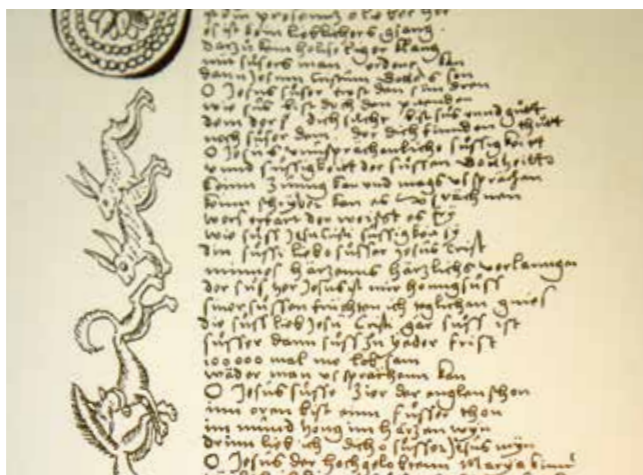 es ist kein lieblichers gsang
darzu kein holseliger klang
nüt süsers man erdenckt kan
dann Jesum Cristum Gottes son
O Jesus süser trost den sündren
wie süs bist doch den
dem der dich sücht bist süs und gütt
noch süser dem der dich finden thütt
O Jesus unussprachenliche süssigkeit
unnd süssigkeitt der süssen Gottheitt
keinn Zunng kan und mags ussprächan
keinn schryber kan es
wers erfart der weisst es
wie süss Jesu Cristi süssigkeit sy
din süssi liebe süsser Jesus Crist
mimes härzenns härzlichs verlanngen
der süs her Jesus ist mir honigsüss
siner süssen früchten ich teglichen gnies
die süss lieb Jesu Cristi gar süss ist
süsser dann süss zu yeder frist
100000 mal me lobsam
wäder man ussprächenn kan
O Jesus süsse Zier der englen schon
inn oren bist einn süsser thon
im mund hong im härzen wyn
drum lieb ich dich süsser Jesus myn
O Jesus der hochgelobtenn Marya